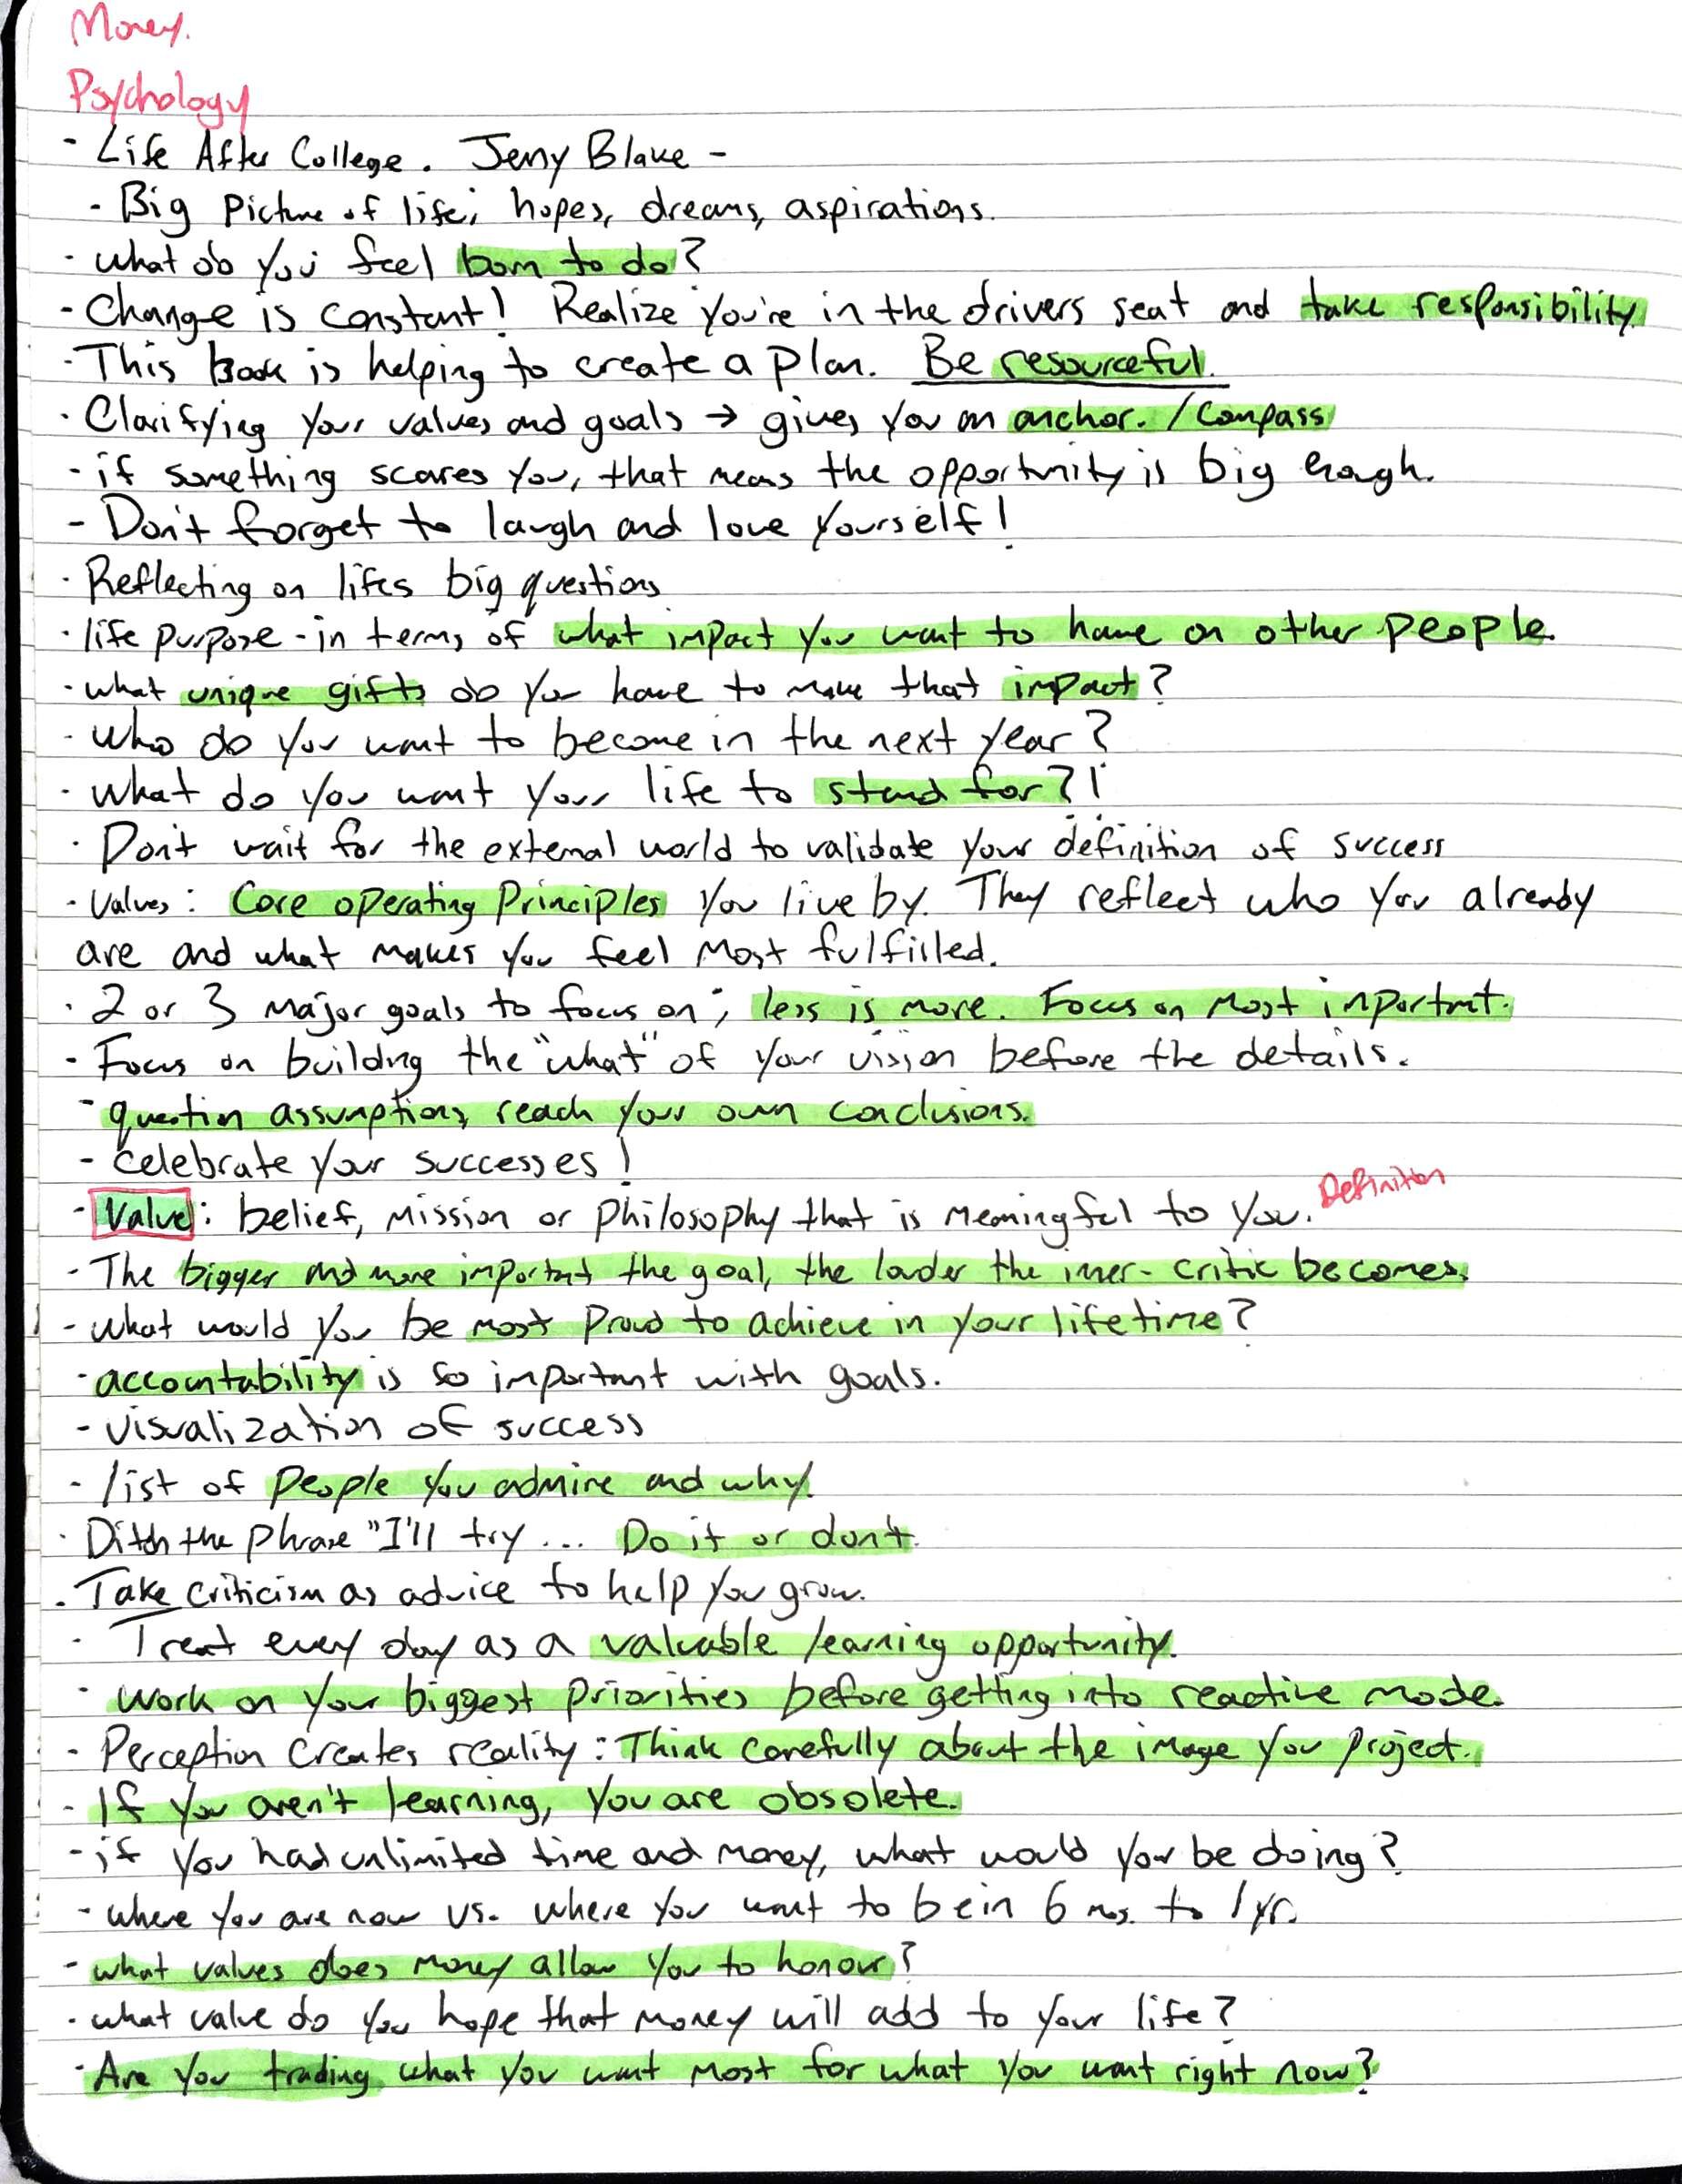 Money.
Psychology
- Life After College. Jenny Blake -
- Big Picture of life; hopes, dreams, aspirations.
- what do you feel born to do?
- Change is constant! Realize you're in the drivers seat and take responsibility
- This Book is helping to create a plan. Be resourceful.
- Clarifying your values and goals → gives you an anchor. / Compass
- if something scares you, that means the opportunity is big enough.
- Don't forget to laugh and love yourself!
- Reflecting on lifes big questions
- life purpose - in terms of what impact you want to have on other people.
- what unique gifts do you have to make that impact?
- who do you want to become in the next year?
- what do you want your life to stand for?!
- Don't wait for the external world to validate your definition of success
- Values: Core operating Principles you live by. They reflect who you already
are and what makes you feel most fulfilled.
- 2 or 3 major goals to focus on; less is more. Focus on most important.
- Focus on building the "what" of your vision before the details.
- question assumptions, reach your own conclusions.
- celebrate your successes!
- Value: belief, mission or philosophy that is meaningful to you. Definition
- The bigger and more important the goal, the louder the inner-critic becomes.
- what would you be most proud to achieve in your lifetime?
- accountability is so important with goals.
- visualization of success
- list of people you admire and why.
- Ditch the phrase "I'll try... Do it or don't.
- Take criticism as advice to help you grow.
- Treat every day as a valuable learning opportunity.
- Work on your biggest priorities before getting into reactive mode.
- Perception creates reality: Think carefully about the image you project.
- If you aren't learning, you are obsolete.
- if you had unlimited time and money, what would you be doing?
- where you are now vs. where you want to be in 6 mos. to 1 yr.
- what values does money allow you to honour?
- what value do you hope that money will add to your life?
- Are you trading what you want most for what you want right now?